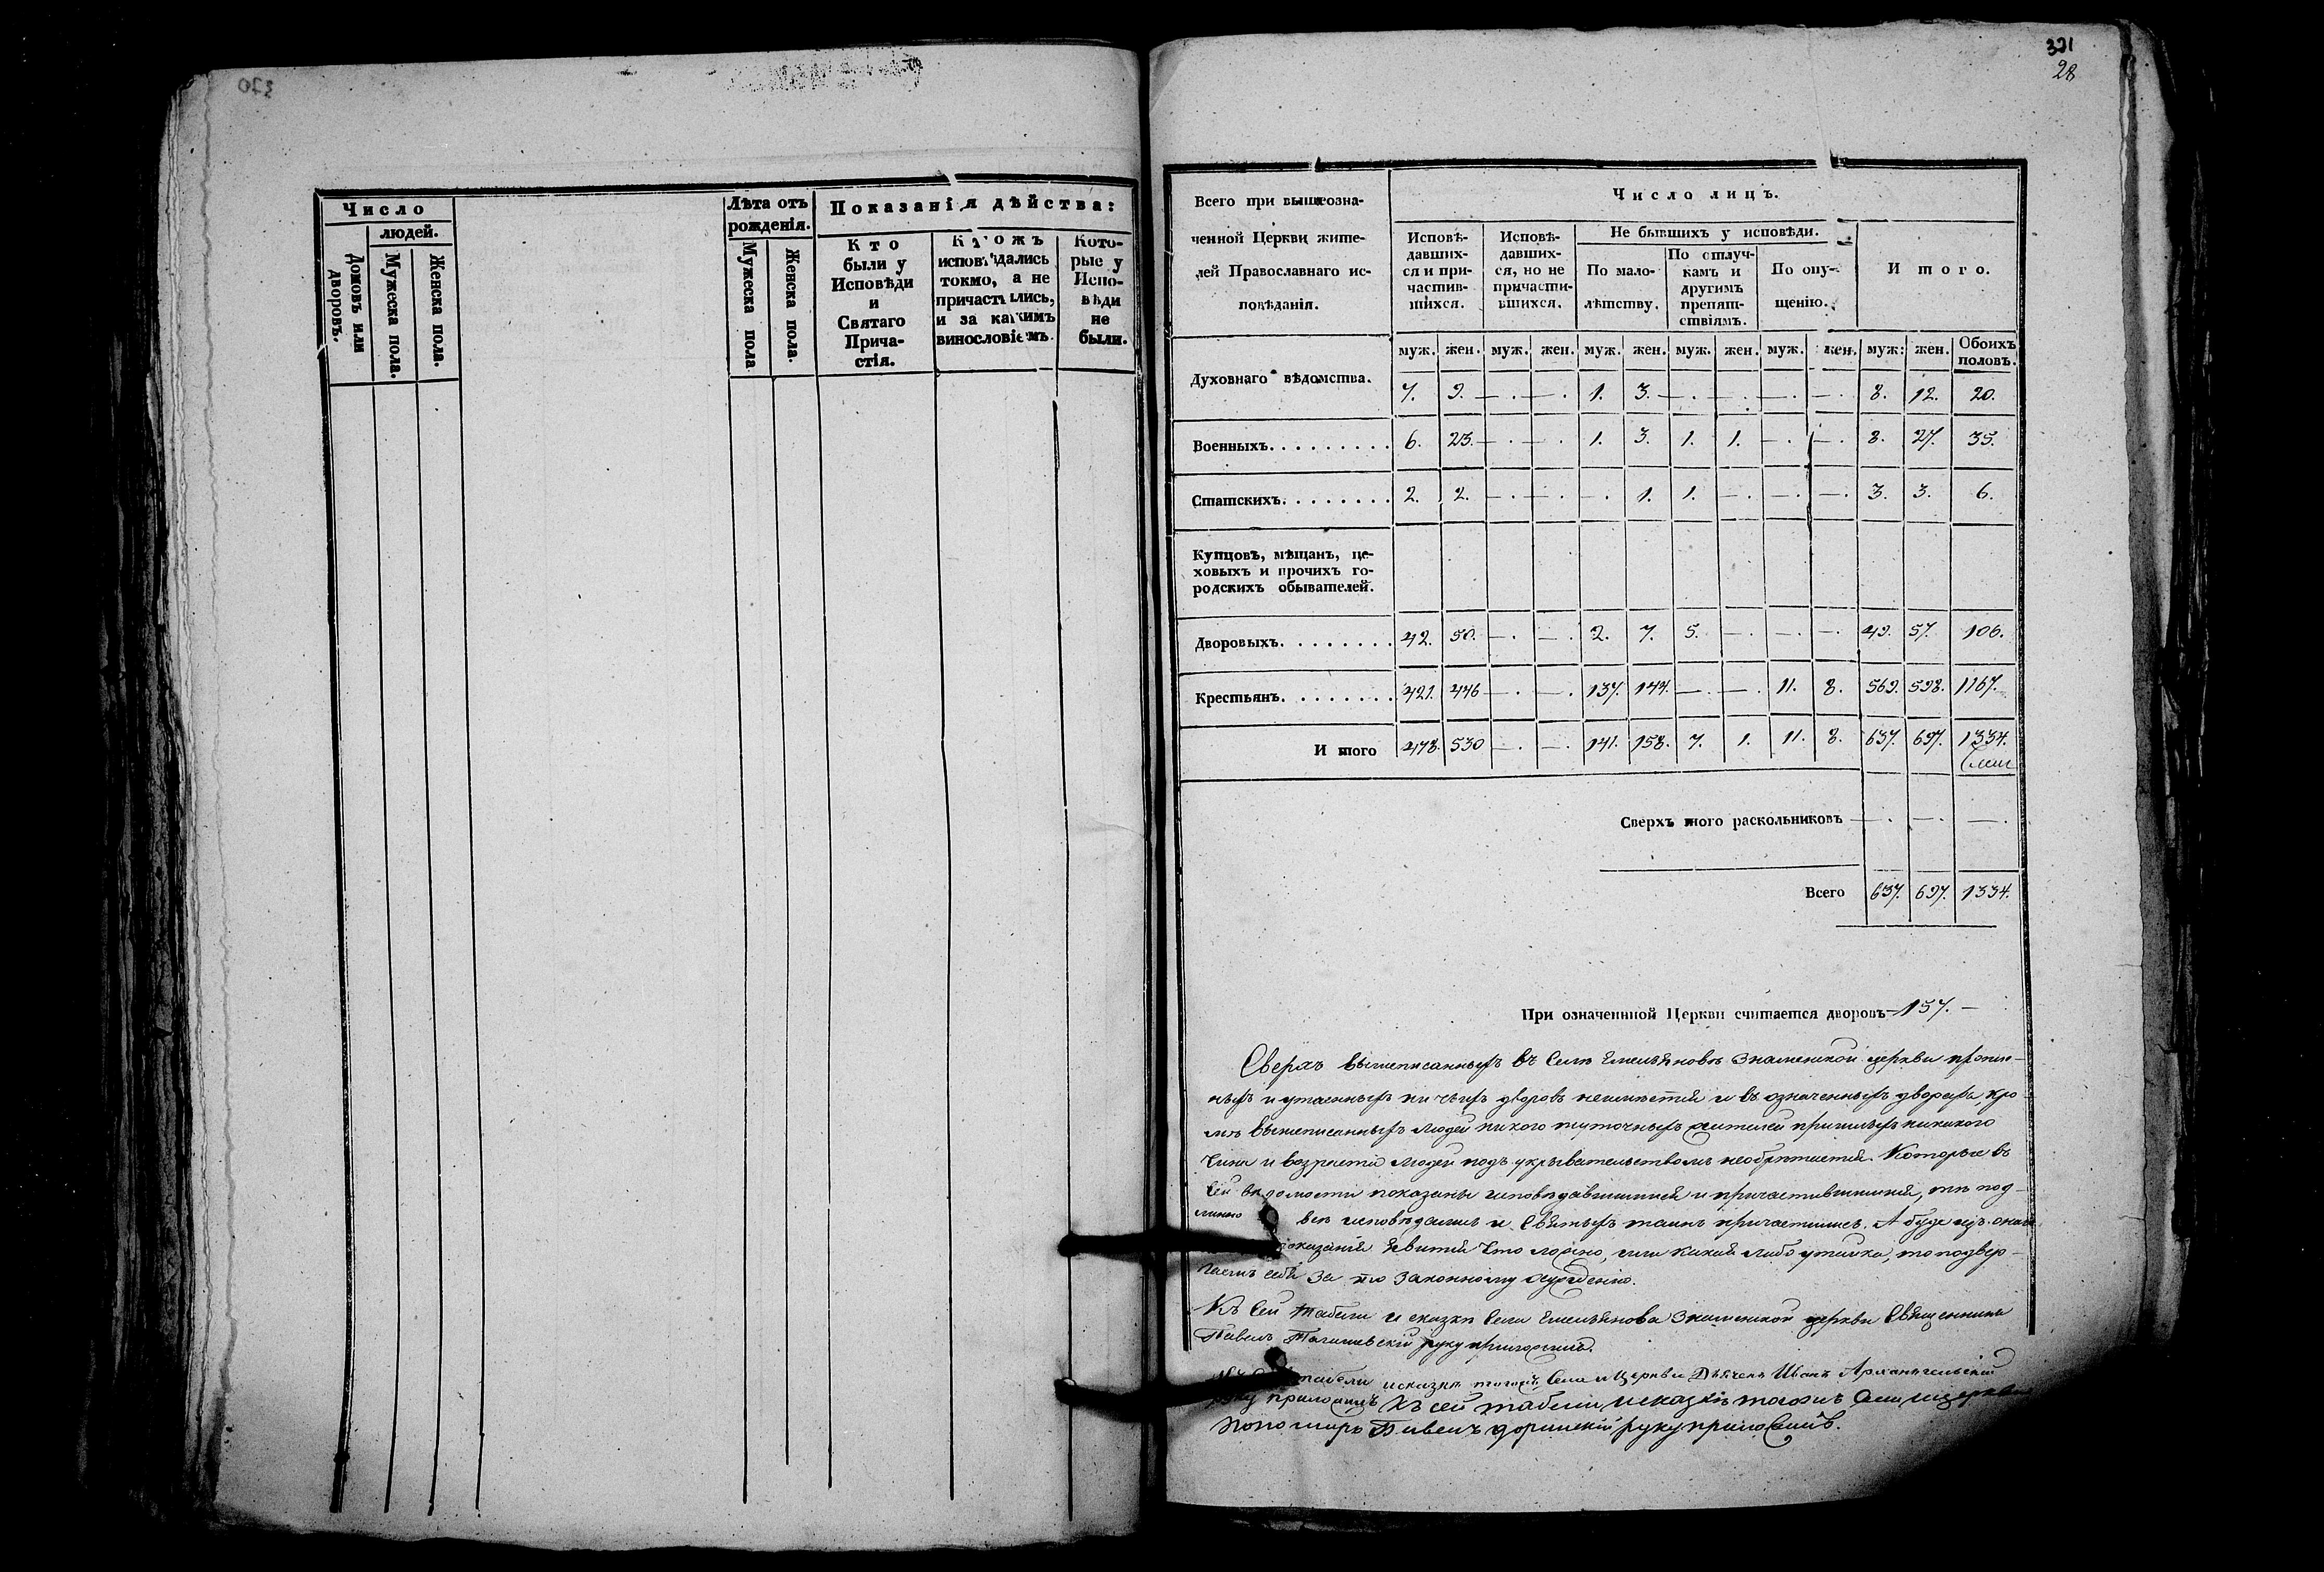 370
Число
людей.
Домовъ или дворовъ.
Мужеска пола.
Женска пола.
Лѣта отъ
рожденія.
Мужеска пола
Женска пола.
Показанія дѣйства:
Кто
были у
Исповѣди
и
Святаго
Прича-
стія.
Ктожъ
исповѣдались
токмо, а не
причастились,
и за какимъ
винословіемъ.
Кото-
рые у
Испо-
вѣди
не
были.
28
Всего при вышеозна-
ченной Церкви жите-
лей Православнаго ис-
повѣданія.
Число лицъ.
Исповѣ-
давших-
ся и при-
частив-
шихся.
Исповѣ-
давших-
ся, но не
причасти-
вшихся.
Не бывшихъ у исповѣди.
По мало-
лѣтству.
По отлуч-
камъ и
другимъ
препят-
ствіямъ.
По опу-
щенію.
Итого.
муж. жен. муж. жен. муж. жен. муж. жен. муж. жен. муж: жен. Обоихъ половъ.
Духовнаго вѣдомства. 7. 9. —. —. 1. 3. —. —. —. —. 8. 12. 20.
Военныхъ. . . . . . . . . 6. 23. —. —. 1. 3. 1. 1. —. —. 8. 27. 35.
Статскихъ. . . . . . . . 2. 2. —. —. —. 1. 1. —. —. —. 3. 3. 6.
Купцовъ, мѣщанъ, це-
ховыхъ и прочихъ го-
родскихъ обывателей.
Дворовыхъ. . . . . . . . 42. 50. —. —. 2. 7. 5. —. —. —. 49. 57. 106.
Крестьянъ. . . . . . . . 421. 446 —. —. 137. 144. —. —. 11. 8. 569. 598. 1167.
И того 478. 530 —. —. 141. 158. 7. 1. 11. 8. 637. 697. 1334.
Сверхъ того раскольниковъ —. —. —.
Всего 637. 697. 1334.
При означенной Церкви считается дворовъ—157.—
Сверхъ вышеписанныхъ въ селѣ Емельяновѣ Знаменской церкви пропис-
ныхъ и утаенныхъ ни чьихъ дворовъ неимѣется и въ означенныхъ дворахъ, кро-
мѣ вышеписанныхъ людей никого туточныхъ жителей пришлыхъ никакого
чина и возраста людей подъ укрывательствомъ необрѣтается. Которые въ
сей вѣдомости показаны исповѣдавшимися и причастившимися, тѣ под-
линно всѣ исповѣдались и Святыхъ таинъ причастились. А буде изъ онаго
показанія явится что ложно, или какая либо утайка, то подвер-
гаемъ себя за то законному осужденію.
Къ сей табели и сказкѣ села Емельянова Знаменской церкви Священникъ
Павелъ руку приложилъ.
табели и сказкѣ тогожъ села и церкви Дьячекъ Иванъ Архангельскій
руку приложилъ Къ сей табели и сказкѣ тогожъ села и церкви
пономарь Павелъ руку приложилъ.